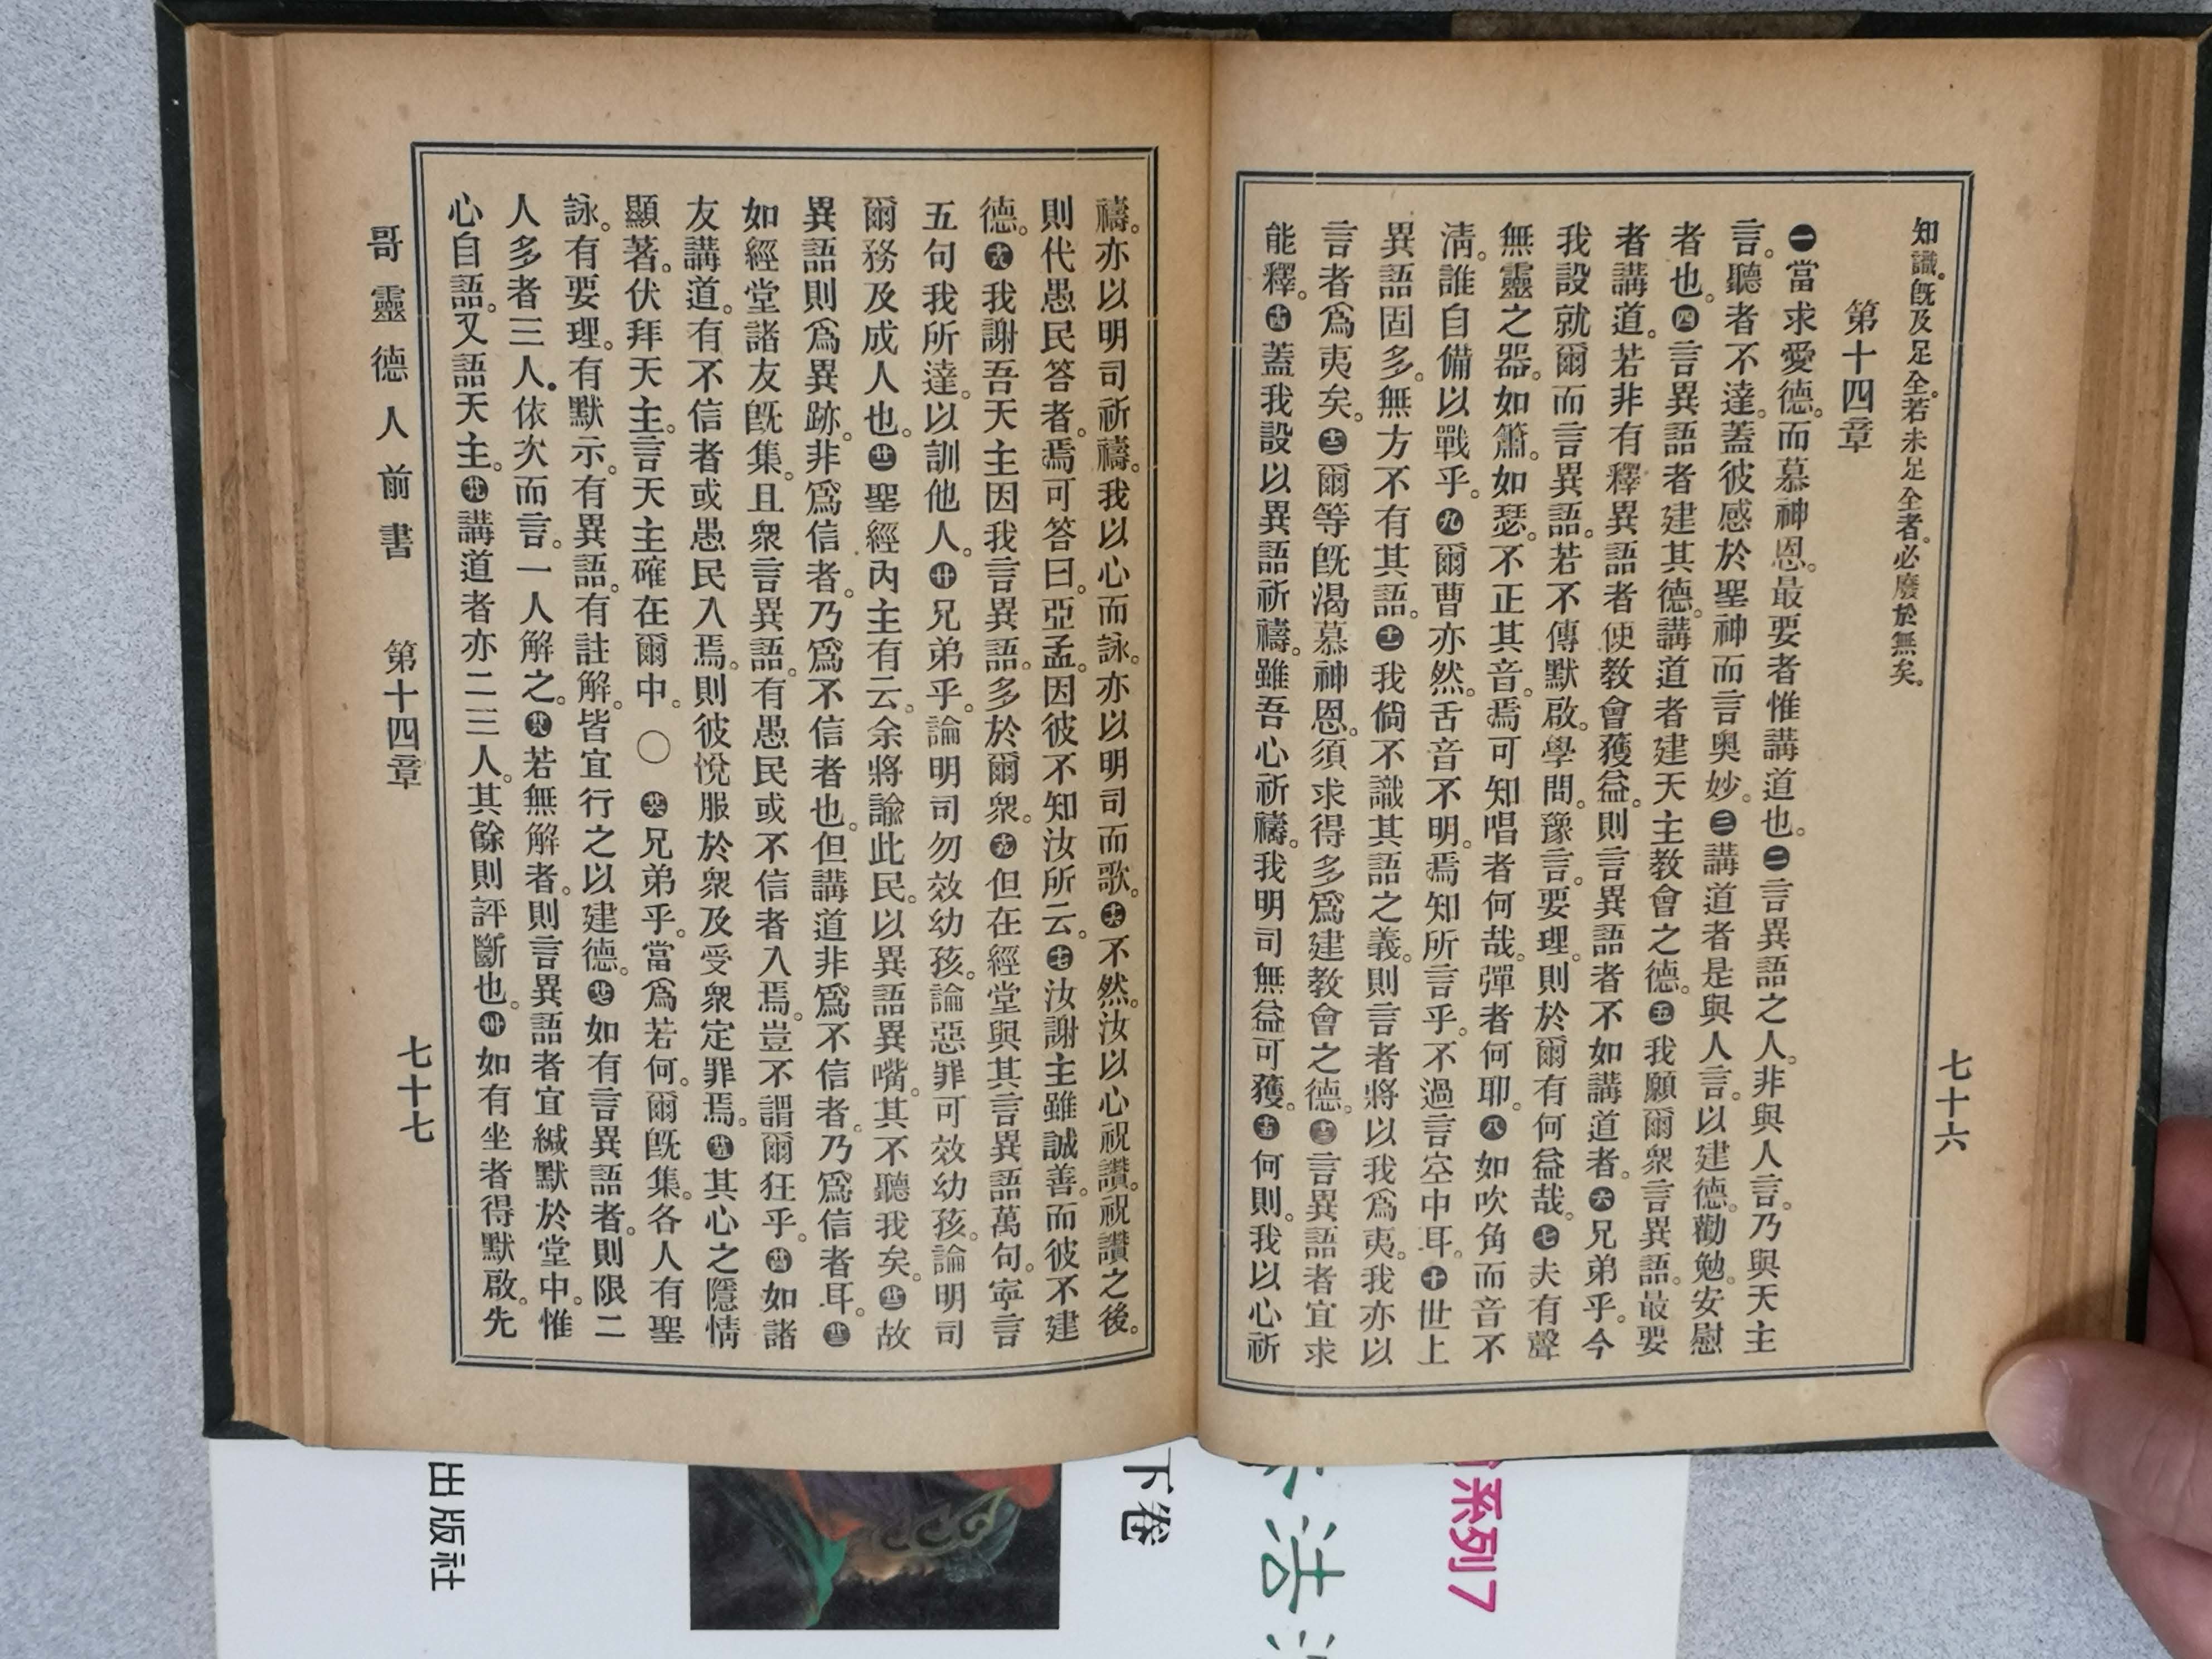 知識。旣及足全。若未足全者。必廢於無矣。
第十四章
㊀當求愛德。而慕神恩。最要者惟講道也。㊁言異語之人。非與人言。乃與天主
言。聽者不達。蓋彼感於聖神而言奧妙。㊂講道者是與人言。以建德。勸勉。安慰
者也。㊃言異語者建其德。講道者建天主教會之德。㊄我願爾衆言異語。最要
者講道。若非有釋異語者使教會獲益。則言異語者不如講道者。㊅兄弟乎。今
我設就爾而言異語。若不傳默啟。學問。豫言。要理。則於爾有何益哉。㊆夫有聲
無靈之器。如簫。如瑟。不正其音。焉可知唱者何哉。彈者何耶。㊇如吹角而音不
淸。誰自備以戰乎。㊈爾曹亦然。舌音不明。焉知所言乎。不過言空中耳。㊉世上
異語固多。無方不有其語。十一我倘不識其語之義。則言者將以我爲夷。我亦以
言者爲夷矣。十二爾等旣渴慕神恩。須求得多爲建教會之德。十三言異語者宜求
能釋。十四蓋我設以異語祈禱。雖吾心祈禱。我明司無益可獲。十五何則。我以心祈
七十六
禱。亦以明司祈禱。我以心而詠。亦以明司而歌。十六不然。汝以心祝讚。祝讚之後。
則代愚民答者。焉可答曰。亞孟。因彼不知汝所云。十七汝謝主雖誠善。而彼不建
德。十八我謝吾天主因我言異語。多於爾衆。十九但在經堂與其言異語萬句。寧言
五句我所達。以訓他人。廿兄弟乎。論明司勿效幼孩。論惡罪可效幼孩。論明司
爾務及成人也。廿一聖經內主有云。余將諭此民。以異語異嘴。其不聽我矣。廿二故
異語則爲異跡。非爲信者。乃爲不信者也。但講道非爲不信者。乃爲信者耳。廿三
如經堂諸友旣集。且衆言異語。有愚民或不信者入焉。豈不謂爾狂乎。廿四如諸
友講道。有不信者或愚民入焉。則彼悅服於衆及受衆定罪焉。廿五其心之隱情
顯著。伏拜天主。言天主確在爾中。〇廿六兄弟乎。當爲若何。爾旣集。各人有聖
詠。有要理。有默示。有異語。有註解。皆宜行之以建德。廿七如有言異語者。則限二
人多者三人。依次而言。一人解之。廿八若無解者。則言異語者宜緘默於堂中。惟
心自語。又語天主。廿九講道者亦二三人。其餘則評斷也。卅如有坐者得默啟。先
哥靈德人前書 第十四章 七十七
出版社
下卷
系列7